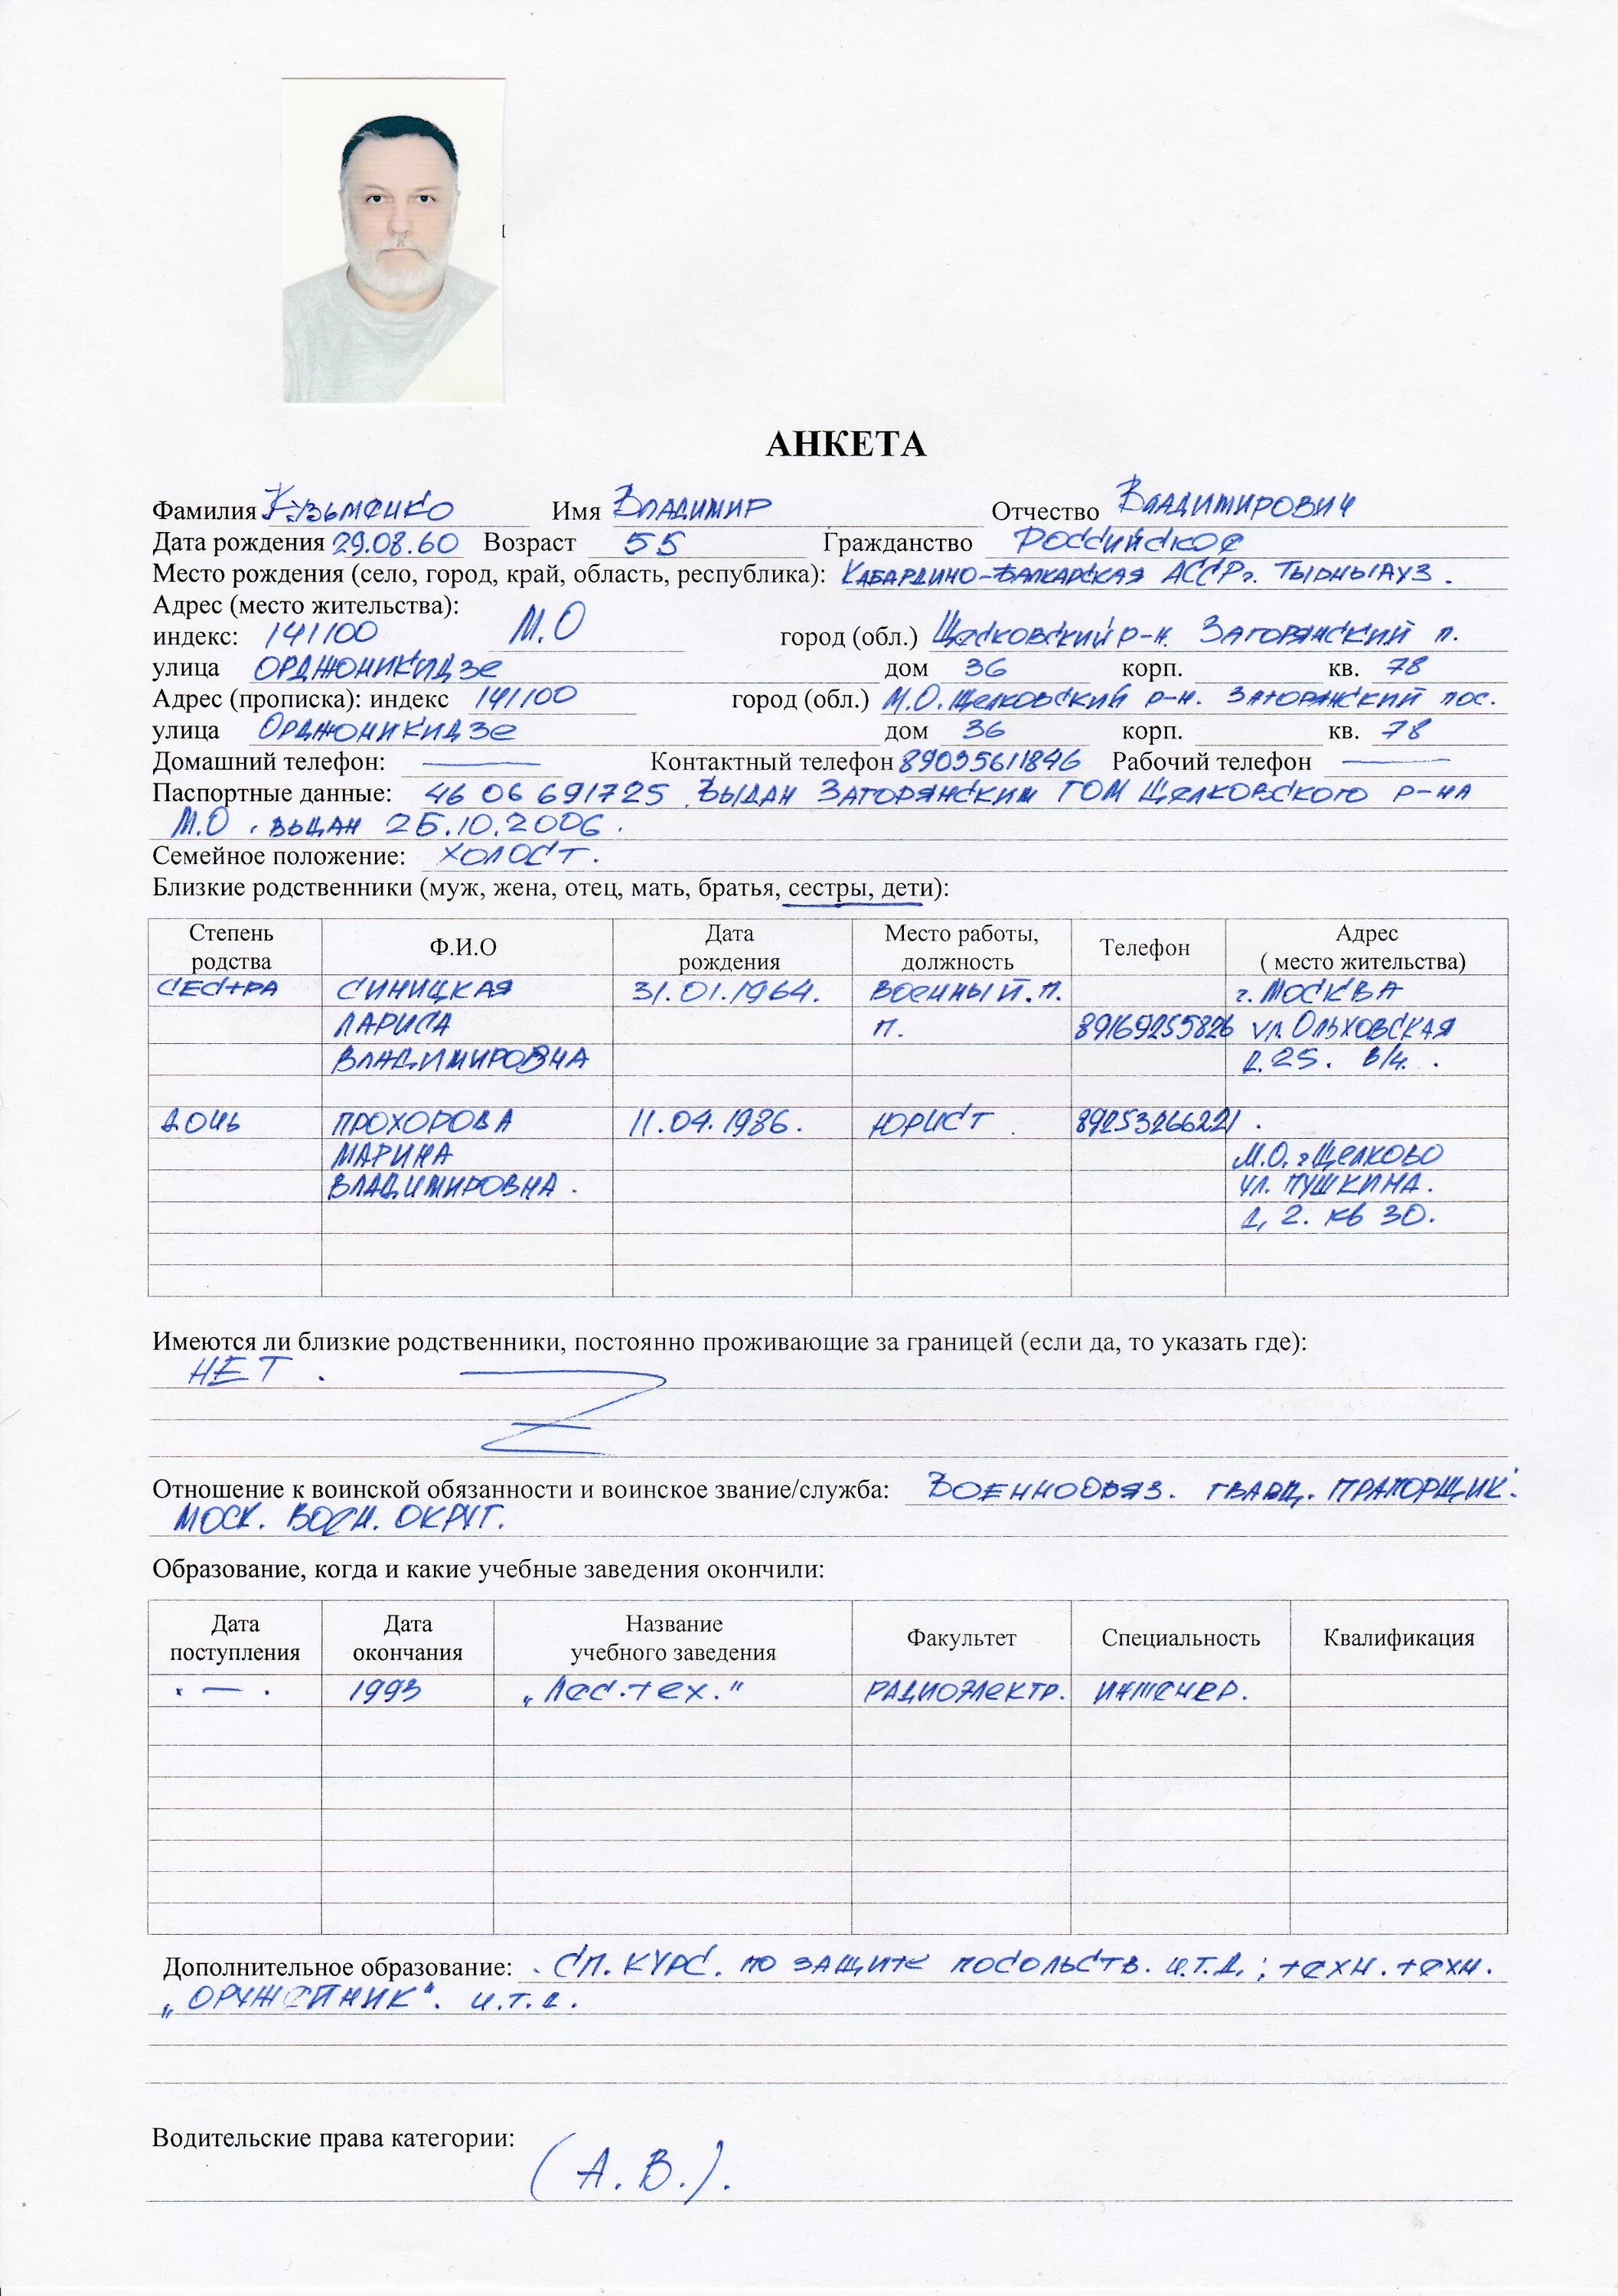 АНКЕТА
Фамилия Кузьменко Имя Владимир Отчество Владимирович
Дата рождения 29.08.60 Возраст 55 Гражданство Российское
Место рождения (село, город, край, область, республика): Кабардино-Балкарская АССР г. Тырныауз.
Адрес (место жительства):
индекс: 141100 М.О город (обл.) Щелковский р-н. Загорянский п.
улица Орджоникидзе дом 36 корп. кв. 78
Адрес (прописка): индекс 141100 город (обл.) М.О. Щелковский р-н. Загорянский пос.
улица Орджоникидзе дом 36 корп. кв. 78
Домашний телефон: — Контактный телефон 89035611846 Рабочий телефон —
Паспортные данные: 46 06 691725 . Выдан Загорянским ГОМ Щелковского р-на
М.О . выдан 25.10.2006 .
Семейное положение: холост.
Близкие родственники (муж, жена, отец, мать, братья, сестры, дети):
Степень родства Ф.И.О Дата рождения Место работы, должность Телефон Адрес ( место жительства)
сестра Синицкая 31.01.1964. военный.п. г. Москва
Лариса п. 89169255826 ул. Ольховская
Владимировна д. 25. в/ч. .
дочь Прохорова 11.04.1986. юрист . 89253266221 .
Марина М.О. г Щелково
Владимировна . ул. Пушкина.
д, 2. кв 30.
Имеются ли близкие родственники, постоянно проживающие за границей (если да, то указать где):
НЕТ .
Отношение к воинской обязанности и воинское звание/служба: Военнообяз. гвард. прапорщик.
Моск. воен. округ.
Образование, когда и какие учебные заведения окончили:
Дата поступления Дата окончания Название учебного заведения Факультет Специальность Квалификация
. — . 1993 „Лес.тех." радиоэлектр. инженер.
Дополнительное образование: . сп. курс. по защите посольств. и.т.д. ; техн. техн.
„Оружейник". и.т.д.
Водительские права категории:
(А. В.).